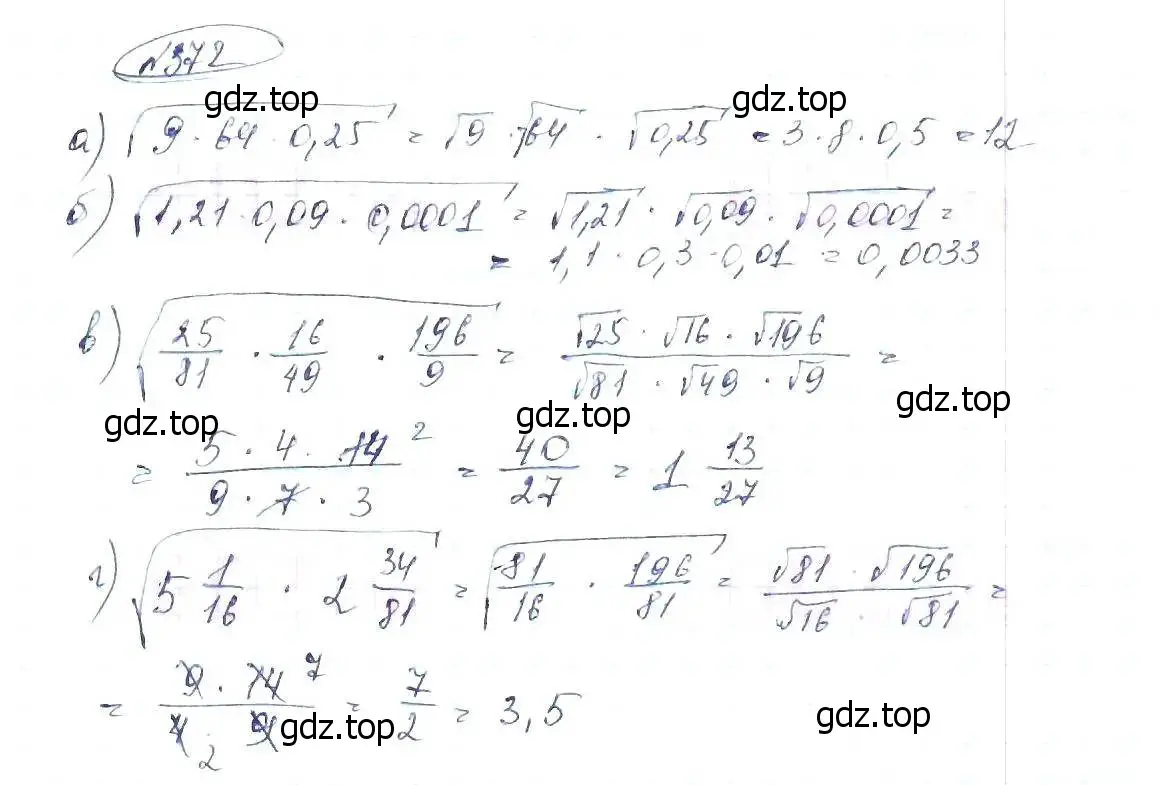 №372
gdz.top gdz.top
а) √(9 · 64 · 0,25) = √9 · √64 · √0,25 = 3 · 8 · 0,5 = 12
б) √(1,21 · 0,09 · 0,0001) = √1,21 · √0,09 · √0,0001 =
= 1,1 · 0,3 · 0,01 = 0,0033
в) √(25/81 · 16/49 · 196/9) = (√25 · √16 · √196)/(√81 · √49 · √9) =
gdz.top gdz.top gdz.top
= (5 · 4 · 14 2)/(9 · 7 · 3) = 40/27 = 1 13/27
г) √(5 1/16 · 2 34/81) = √(81/16 · 196/81) = (√81 · √196)/(√16 · √81) =
= (9 · 14 7)/(4 2 9) = 7/2 = 3,5
gdz.top gdz.top